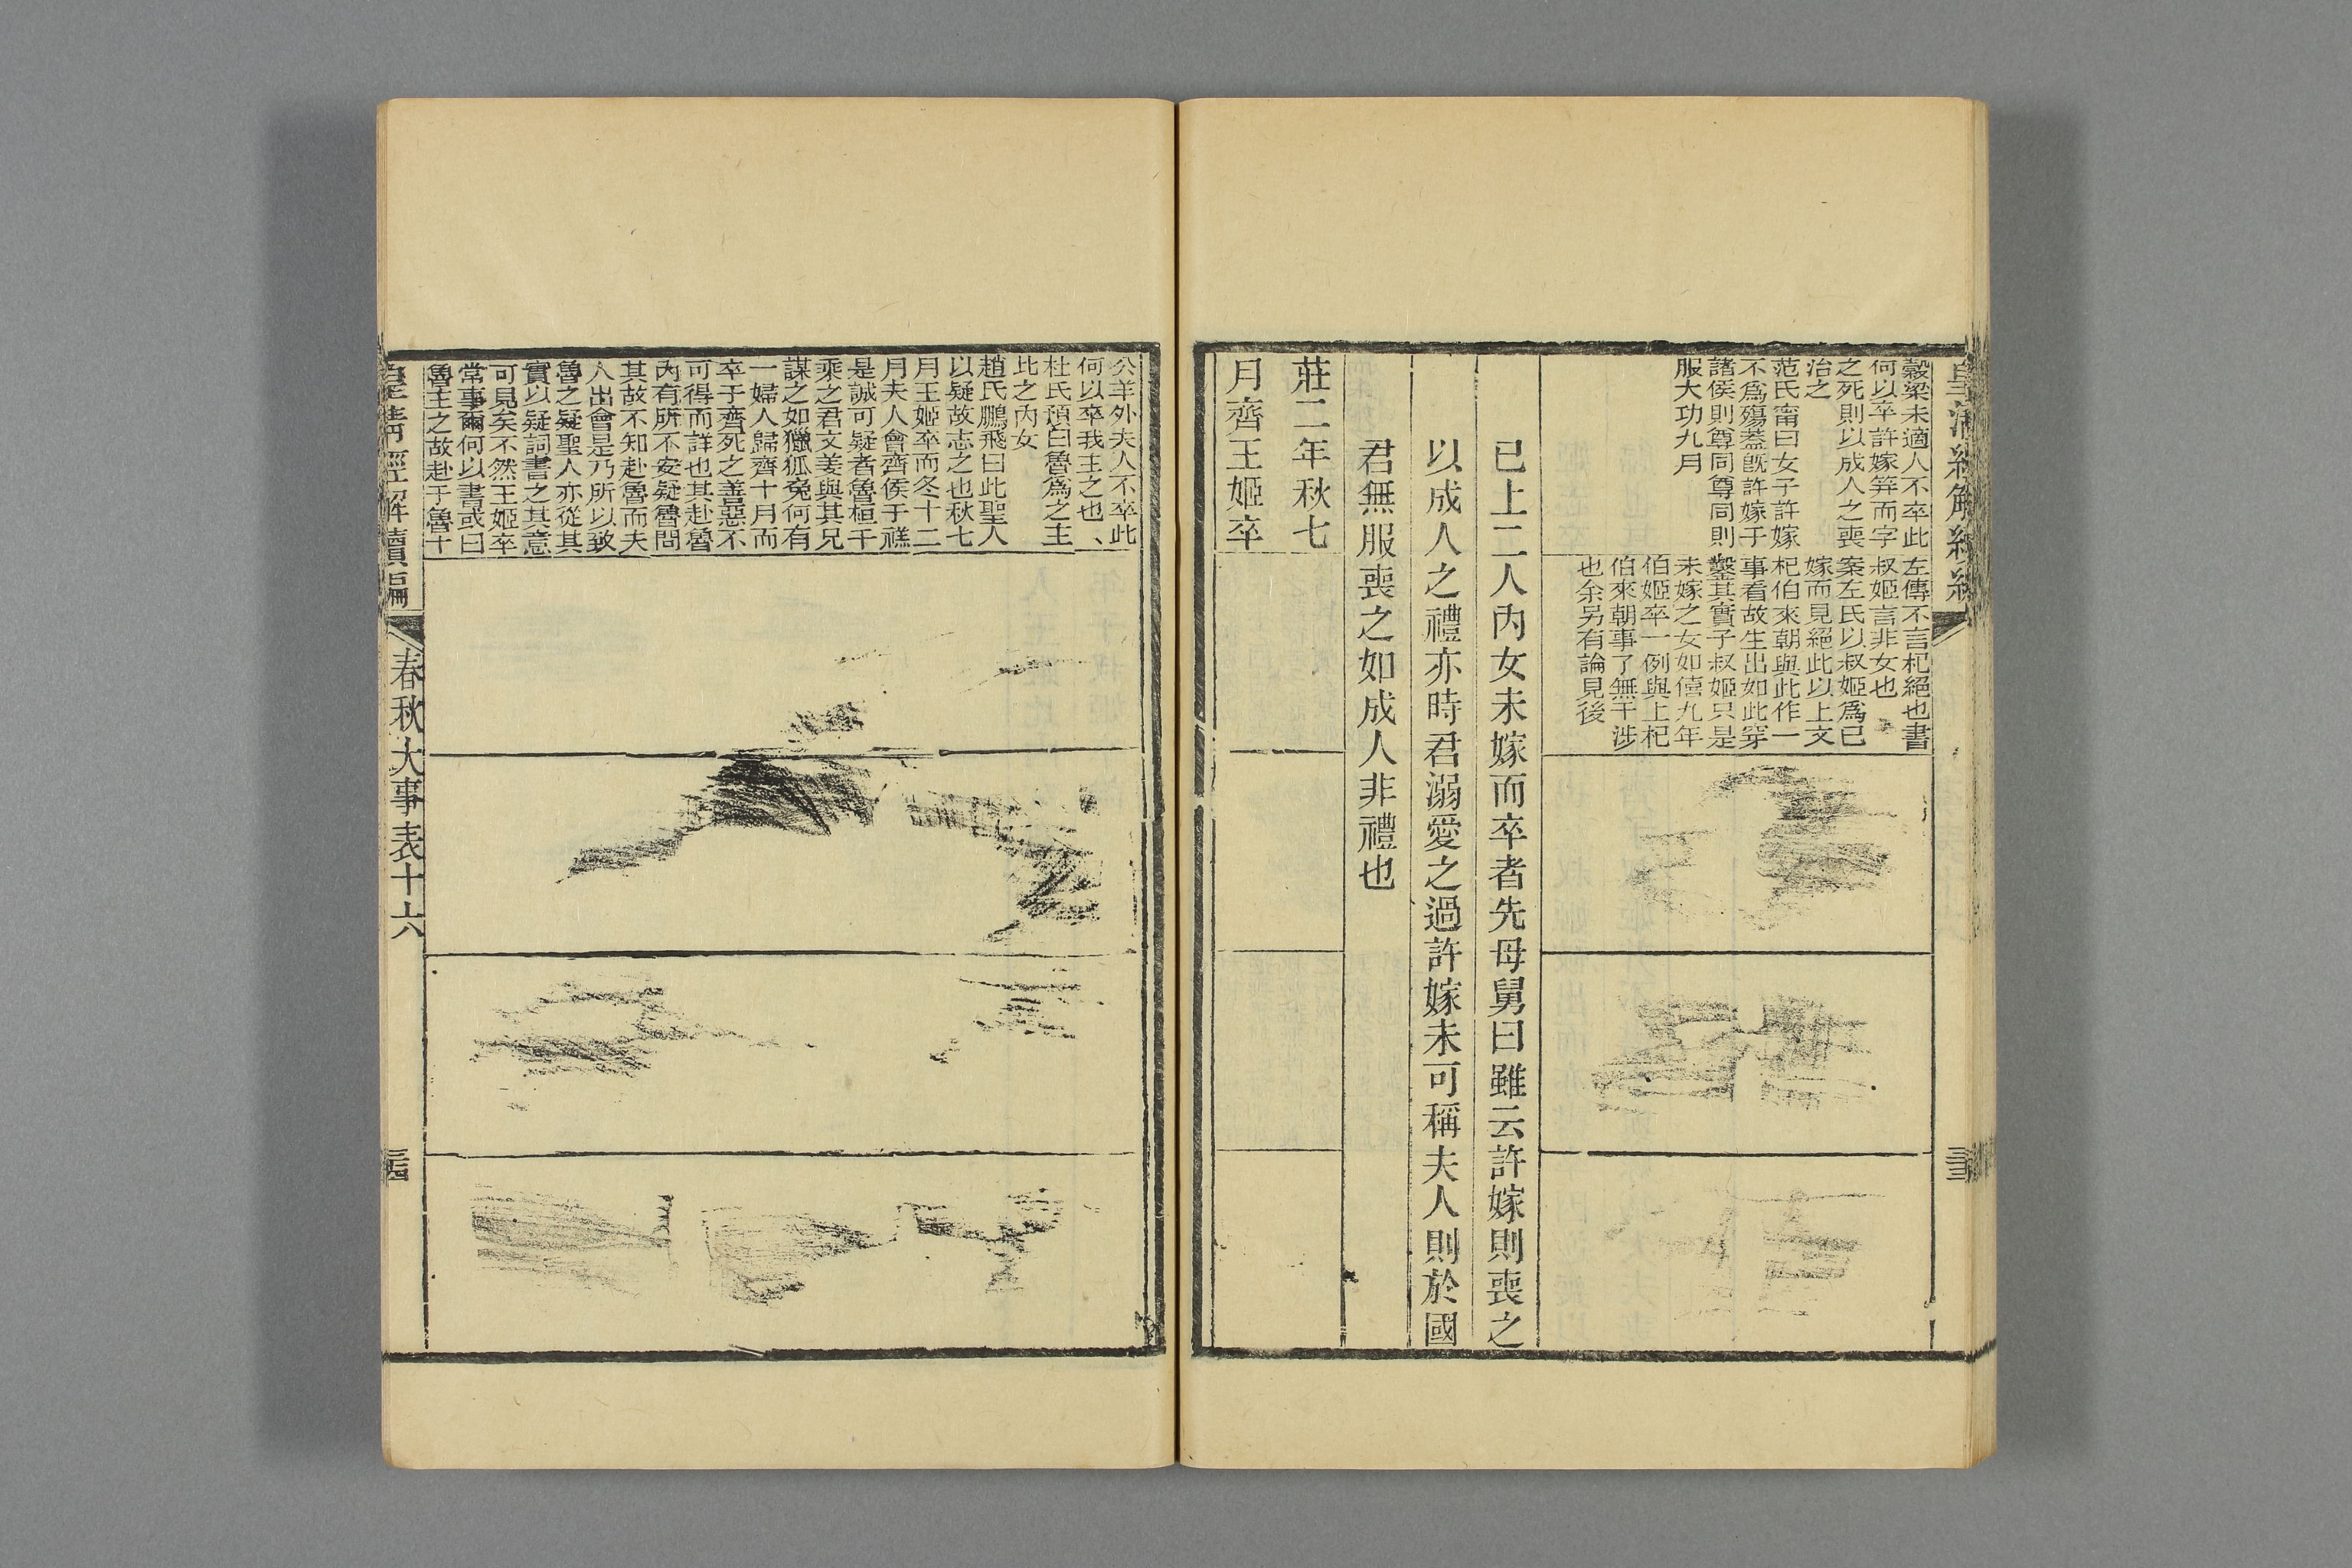 穀梁未適人不卒此
何以卒許嫁筓而字
之死則以成人之喪
治之
范氏甯曰女子許嫁
不為殤蓋旣許嫁于
諸侯則尊同尊同則
服大功九月
左傳不言杞絕也書
叔姬言非女也
案左氏以叔姬為已
嫁而見絕此以上文
杞伯來朝與此作一
事看故生出如此穿
鑿其實子叔姬只是
未嫁之女如僖九年
伯姬卒一例與上杞
伯來朝事了無干涉
也余另有論見後
已上二人內女未嫁而卒者先母舅曰雖云許嫁則喪之
以成人之禮亦時君溺愛之過許嫁未可稱夫人則於國
君無服喪之如成人非禮也
莊二年秋七
月齊王姬卒
公羊外夫人不卒此
何以卒我主之也
杜氏預曰魯為之主
比之內女
趙氏鵬飛曰此聖人
以疑故志之也秋七
月王姬卒而冬十二
月夫人會齊侯于禚
是誠可疑者魯桓千
乘之君文姜與其兄
謀之如獵狐兔何有
一婦人歸齊十月而
卒于齊死之善惡不
可得而詳也其赴魯
內有所不安疑魯問
其故不知赴魯而夫
人出會是乃所以致
魯之疑聖人亦從其
實以疑詞書之其意
可見矣不然王姬卒
常事爾何以書或曰
魯主之故赴于魯十
皇清經解續編
春秋大事表十六